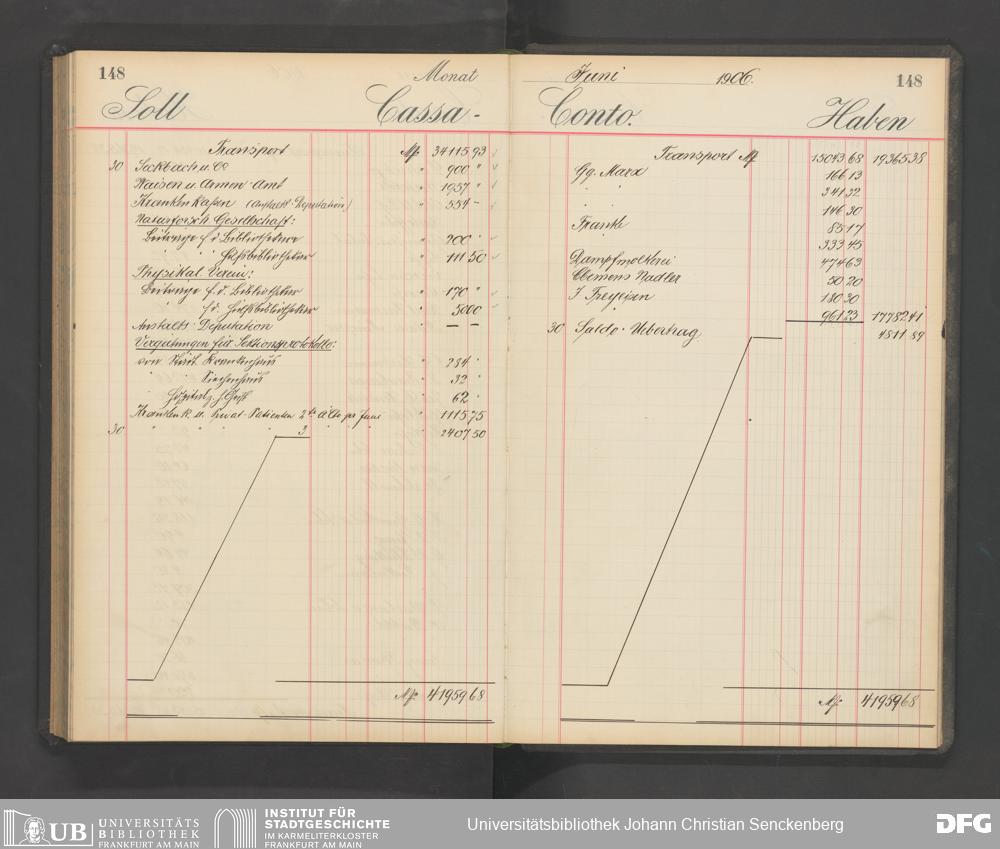 148 Monat
Soll Cassa-
Transport M 34115 93
30 Sackbach u. Co " 900 "
Waisen u. Armen Amt " 1957 "
Kranken Kassen (Anstalts Deputation) " 554 -
Naturforsch Gesellschaft:
Beiträge f. d. Bibliothekare " 200 "
" " Hilfsbibliothekar " 111 50
Physikal. Verein:
Beiträge f. d. Bibliothekar " 170 "
" f. d. Hilfsbibliothekar " 50 00
Anstalts Deputation " — —
Vergütungen für Sektionsprotokolle:
vom Städt. Krankenhaus " 234 "
" " Siechenhaus " 32 "
" Hospital z. h. Geist " 62 "
Krankenk. u. Privat-Patienten 2te à Cto pr Juni " 1115 75
30 " " " " 3 " " " " 2407 50
M 41959 68
Juni 1906. 148
Conto. Haben
Transport M 15043 68 19365 38
Gg. Marx 166 13
" " 341 32
" " 146 30
Franke 85 17
333 45
Dampfmolkerei 474 63
Clemens Nadler 50 20
J Freyeisen 180 30
961 23 17782 41
30 Saldo-Uebertrag 4811 89
M 41959 68
UB UNIVERSITÄTS BIBLIOTHEK FRANKFURT AM MAIN
INSTITUT FÜR STADTGESCHICHTE IM KARMELITERKLOSTER FRANKFURT AM MAIN
Universitätsbibliothek Johann Christian Senckenberg
DFG